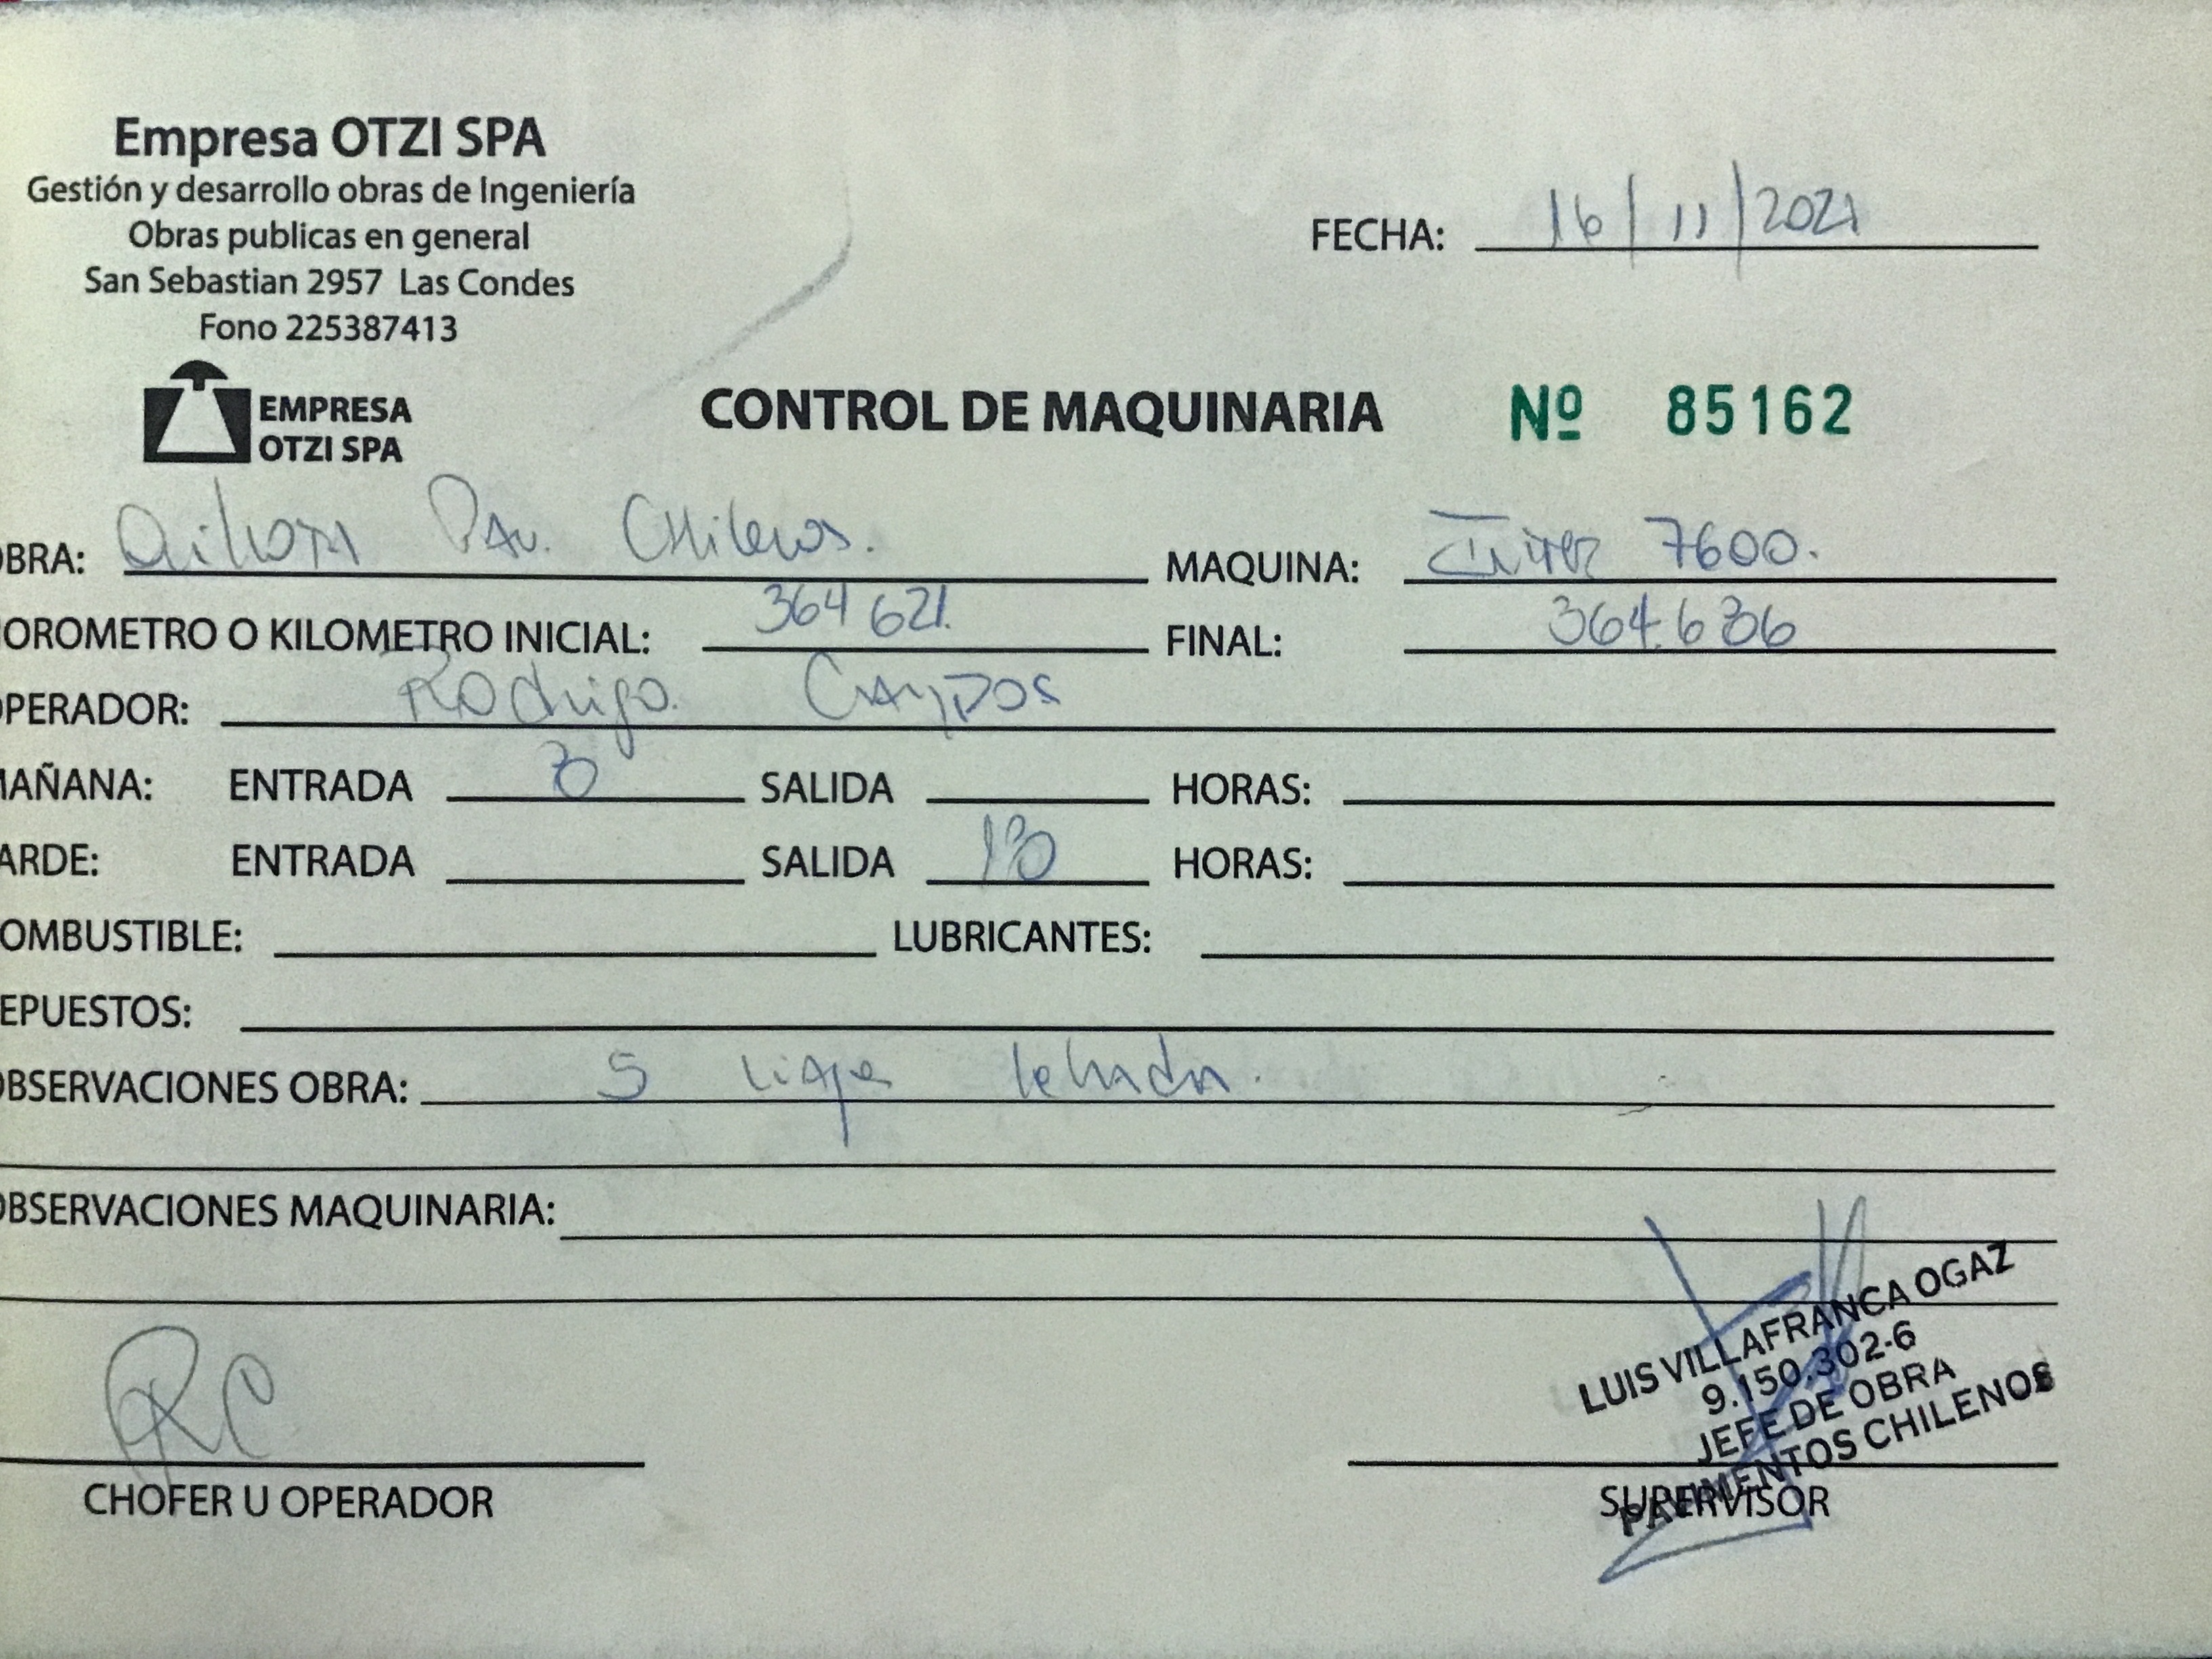 Empresa OTZI SPA
Gestión y desarrollo obras de Ingeniería
Obras publicas en general
San Sebastian 2957 Las Condes
Fono 225387413
FECHA: 16/11/2021
EMPRESA
OTZI SPA
CONTROL DE MAQUINARIA Nº 85162
OBRA: Quilora Pav. Chilenos. MAQUINA: 7600.
OROMETRO O KILOMETRO INICIAL: 364621. FINAL: 364.636
OPERADOR: Rodrigo. Campos
MAÑANA: ENTRADA 8 SALIDA HORAS:
ARDE: ENTRADA SALIDA 18 HORAS:
OMBUSTIBLE: LUBRICANTES:
EPUESTOS:
OBSERVACIONES OBRA: 5
OBSERVACIONES MAQUINARIA:
LUIS VILLAFRANCA OGAZ
9.150.302-6
JEFE DE OBRA
PAVIMENTOS CHILENOS
CHOFER U OPERADOR
SUPERVISOR